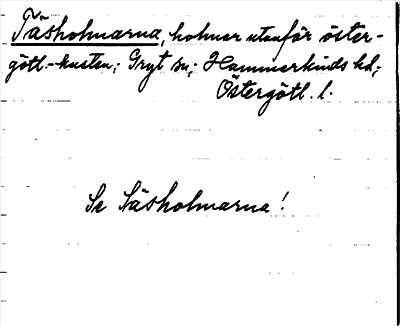 Täsholmarna, holmar utanför öster-
götl.-kusten; Gryt sn; Hammarkinds hd;
Östergötl. l.
Se Säsholmarna!